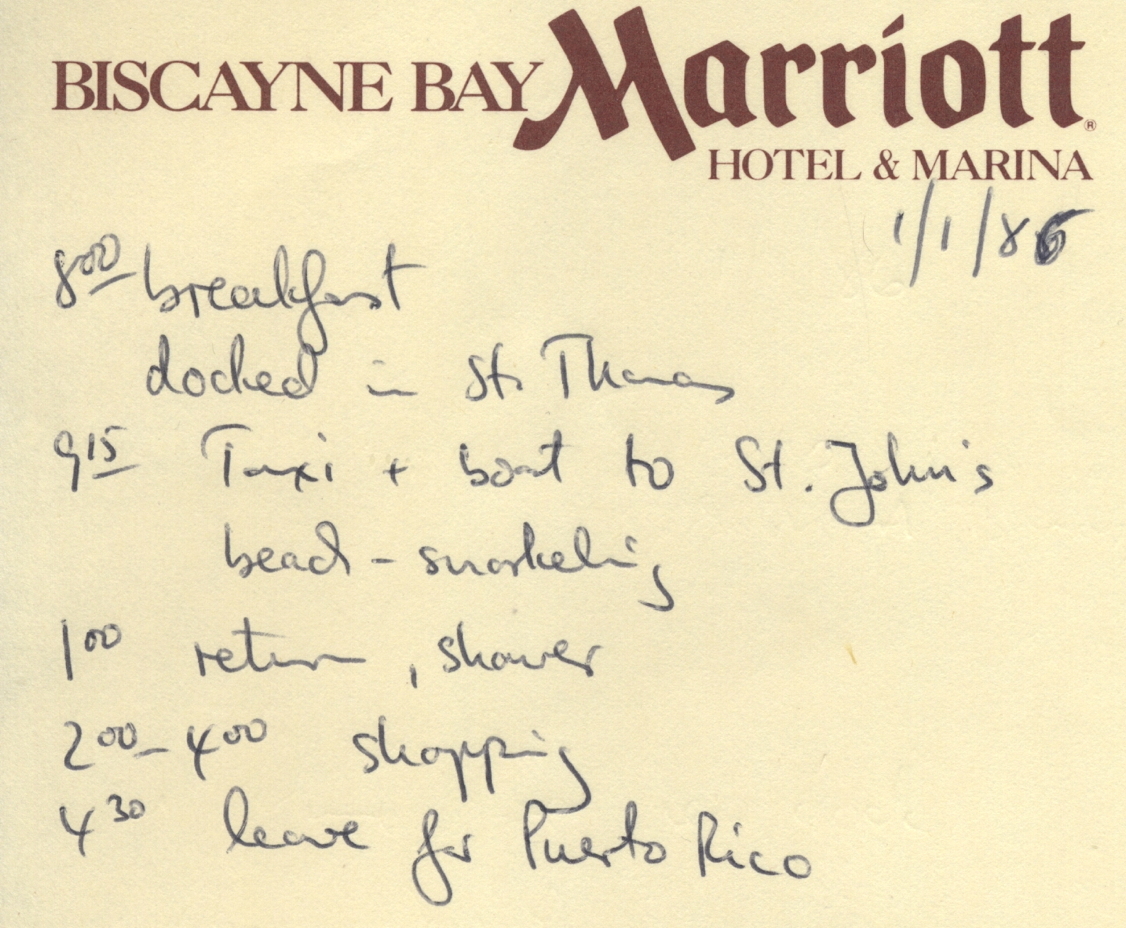 BISCAYNE BAY Marriott®
HOTEL & MARINA
1/1/86
8 00 breakfast
docked in St. Thomas
9 15 Taxi + boat to St. John's
beach - snorkeling
1 00 return, shower
2 00 - 4 00 shopping
4 30 leave for Puerto Rico